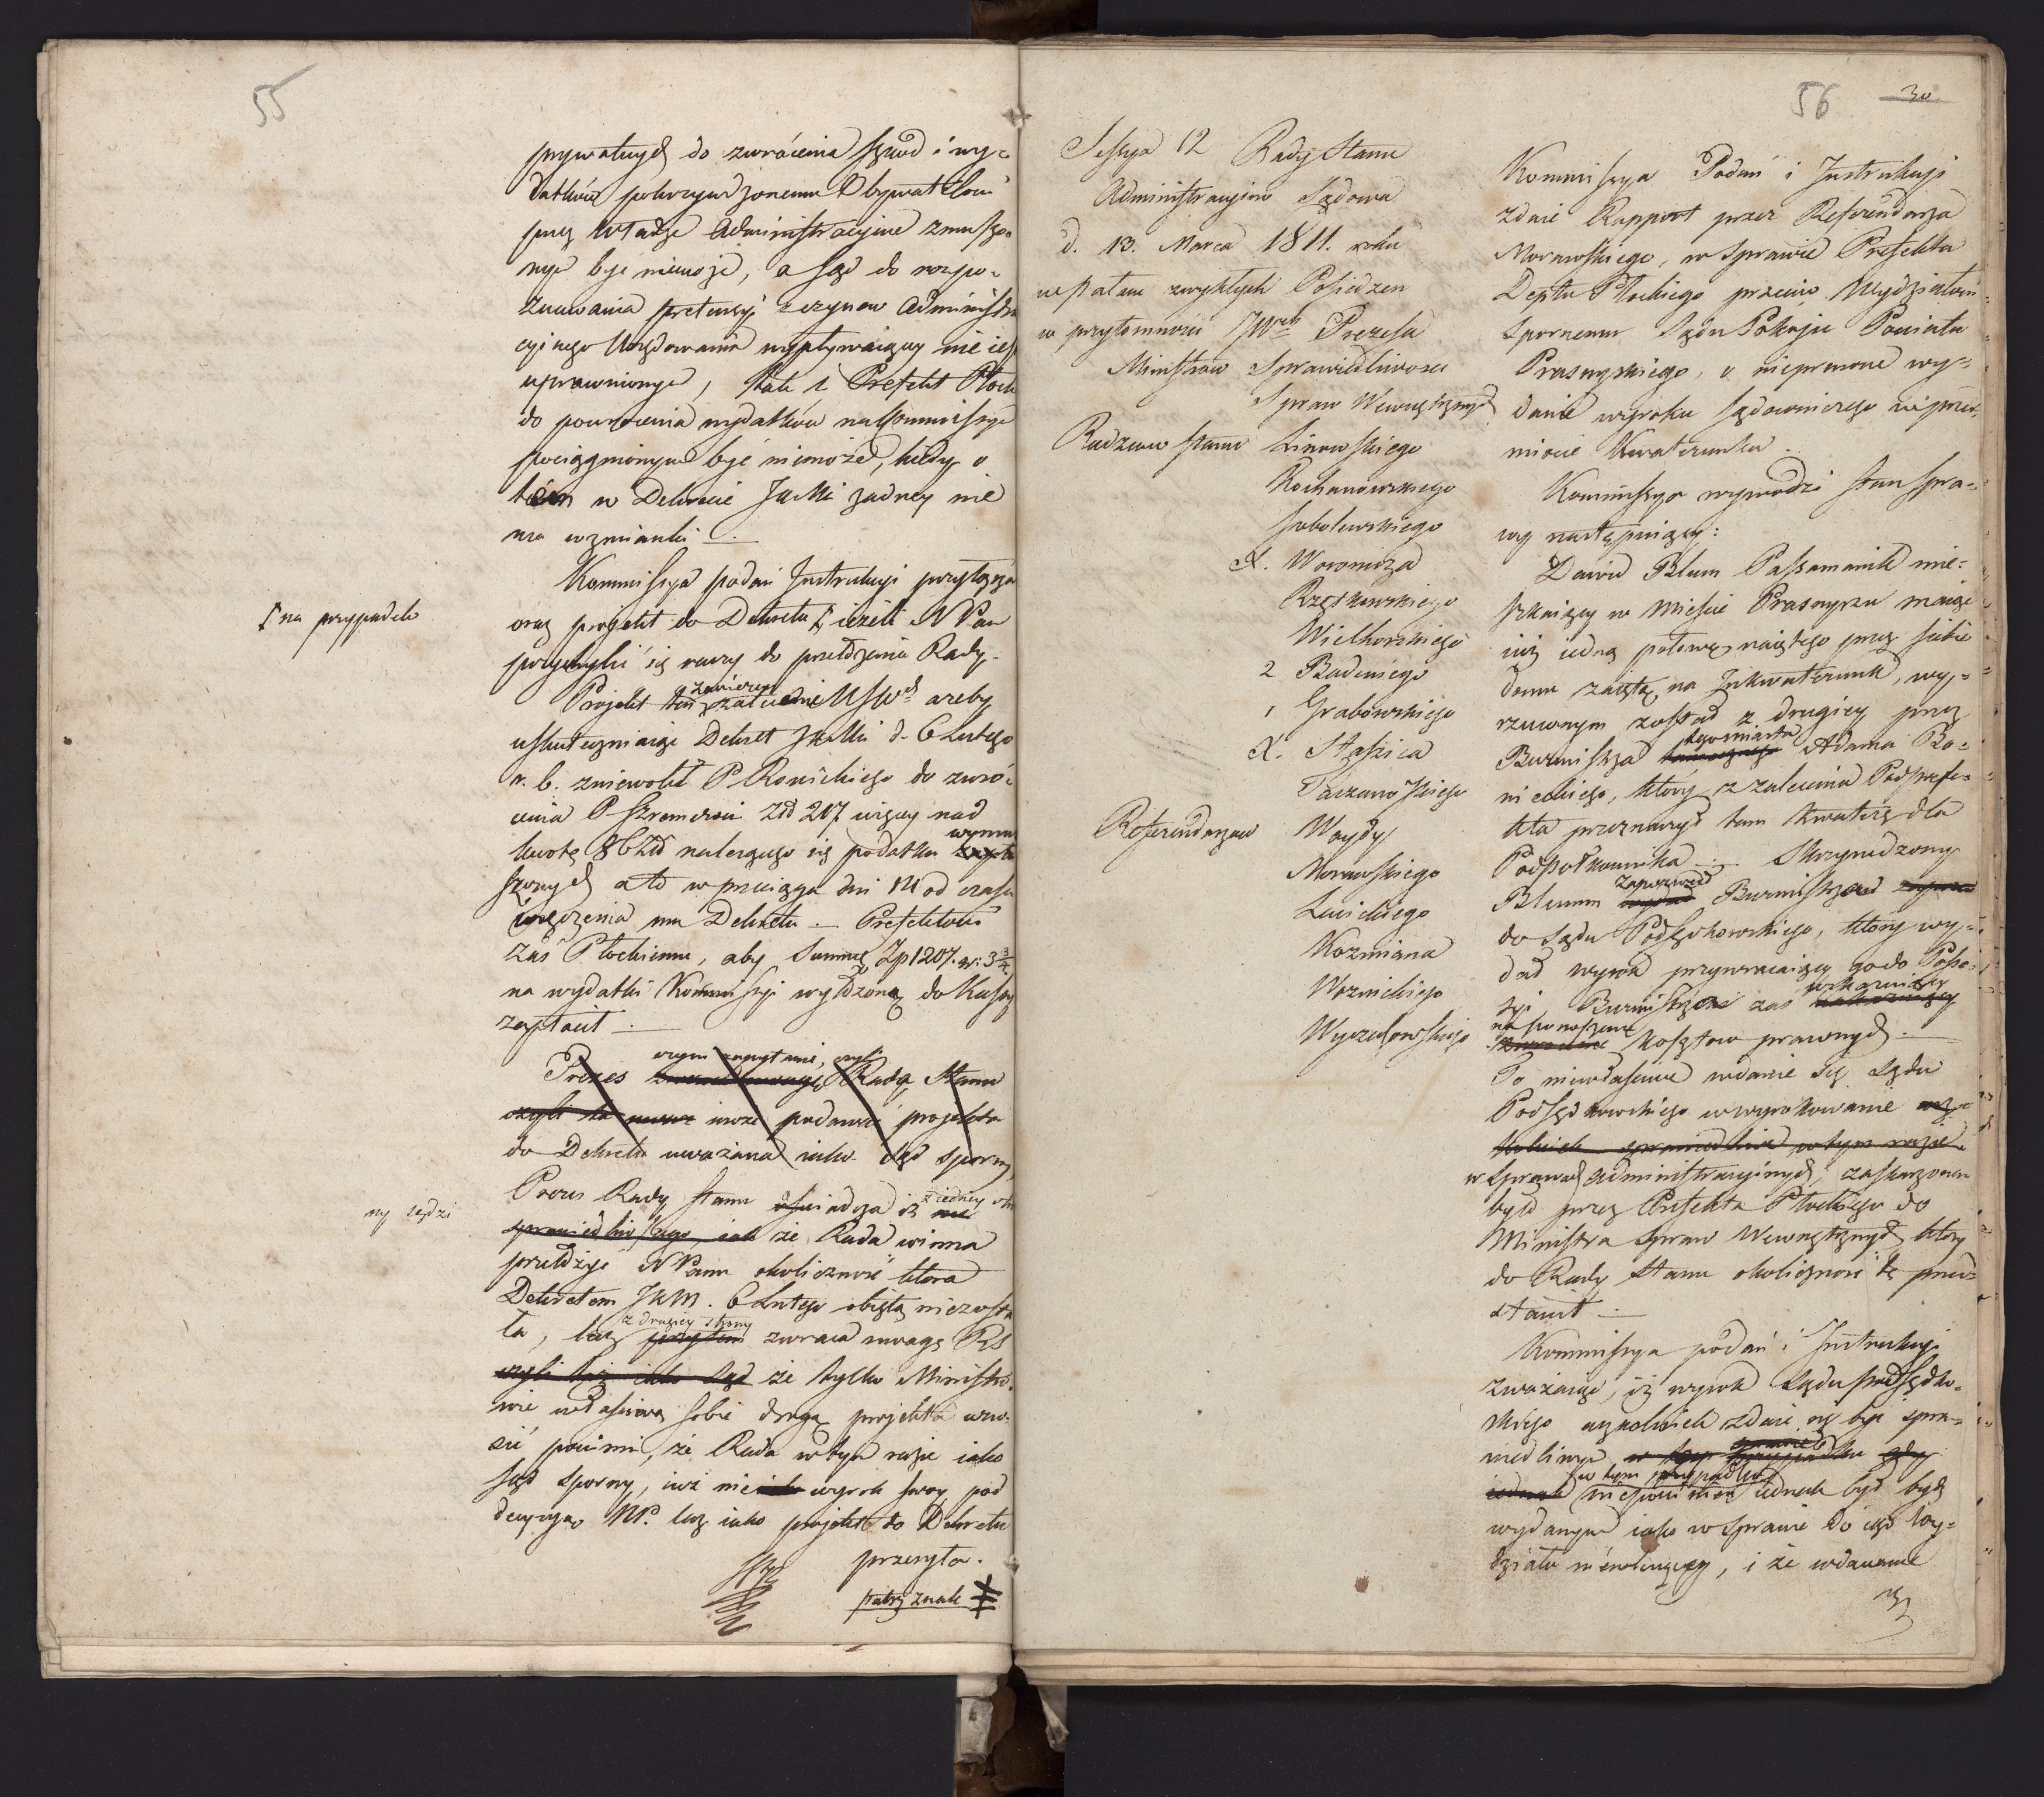 55
prywatnych do zwrócenia szkod i wy=
datków pokrzywdzonemu Obywatelowi
przez Władze Administracyine zmuszo=
nym być niemoże, a Sąd do rozpo=
znawania pretensyi z czynow Administra
cyinego Urzędowania wypływaiących nie iest
uprawnionym, tak i Prefekt Płocki
do powrócenia wydatków na Kommissyę
pociągnionym być niemoże, kiedy o
tém w Dekrecie JKMci żadney nie
ma wzmianki.
Kommissya podań Instrukcyi przyłącza
na przypadek
oraz projekt do Dekretu ieżeli N Pan
przychylić się raczy do przełożenia Rady.
Projekt ten zawiera zalecenie MSWch ażeby
uskuteczniaiąc Dekret JKMci d. 6 Lutego
r. b. zniewolił P. Ronickiego do zwró=
cenia P Szremerowi Złł 207 więcey nad
kwotę 86 Złł należącego się podatku wymu
szonych a to w przeciągu dni 14 od czasu
wręczenia mu Dekretu. Prefektowi
zaś Płockiemu, aby Summę Zp 1207. gr: 3¾
na wydatki Kommissyi wyłożoną do Kassy
zapłacił.
Prezes wzywa zapytanie, czyli Rada Stanu
czyli ta może podawać projekta
do Dekretu uważana iako Sąd sporny
Prezes Rady Stanu oświadcza iż z iedney str
ny sądzi
sprawiedliwszego, iak że Rada winna
przełożyć N Panu okoliczność która
Dekretem JKM. 6 Lutego obięta niezosta
ła, lecz z drugiey strony przytem zwraca uwagę RS
czyli też iako Sąd że tylko Ministro=
wie właściwą sobie drogą projekta wno=
sić powinni, że Rada w tym razie iako
Sąd sporny, iuż nie iako wyrok swoy pod
decyzyą NP. lecz iako projekt do Dekretu
przesyła.
patrz znak
56
30
Sessya 12 Rady Stanu
Administracyino Sądowa
d. 13. Marca 1811. roku
w pałacu zwykłych Posiedzen
w przytomności JWch Prezesa
Ministrow Sprawiedliwosci
Spraw Wewnętrznych
Radzcow Stanu Linowskiego
Kochanowskiego
Sobolewskiego
X. Woronicza
Rzętkowskiego
Wielhorskiego
2 Badeniego
1 Grabowskiego
X. Staszica
Tarzanowskiego
Referendarzow Woydy
Morawskiego
Łuickiego
Kozmiana
Woznickiego
Wyczechowskiego
Kommissya Podań i Instrukcyi
zdaie Rapport przez Referendarza
Morawskiego, w Sprawie Prefekta
Deptu Płockiego przeciw Wydziałowi
Spornemu Sądu Pokoju Powiatu
Prasnyskiego, o nieprawne wy=
danie wyroku Sądowniczego w przed=
miocie Kwaterunku.
Kommissya wywodzi stan spra=
wy następuiący:
Dawid Blum Passamanik mie=
szkaiący w Mieście Prasnyszu maiąc
iuż iedną połowę naiętego przez siebie
domu zaiętą na Inkwaterunek, wy=
rzuconym został z drugiey przez
Burmistrza tego miasta Adama Ro=
nickiego, który z zalecenia Podprefe=
kta przeznaczył tam kwaterę dla
Podpółkownika. Skrzywdzony
Blumm zapozwał Burmistrza
do Sądu Podsędkowskiego, który wy=
dał wyrok przywracaiący go do Posse=
syi Burmistrza zas wskazuiący
na ponoszenie kosztow prawnych.
To niewłaściwe wdanie się Sądu
Podsędkowskiego w wyrokowanie
w tym razie
w sprawach administracyinych, zaskarzone
było przez Prefekta Płockiego do
Ministra Spraw Wewnętrznych który
do Rady Stanu okoliczność tę przed=
stawił.
Kommissya podań i Instrukcyi
zważaiąc, iż wyrok Sądu Podsędko=
wskiego aczkolwiek zdaie się być spra=
wiedliwym
w tym przypadku
niepowinien iednak był być
wydanym iako w Sprawie do iego Wy=
działu nienależącey, i że wdawanie